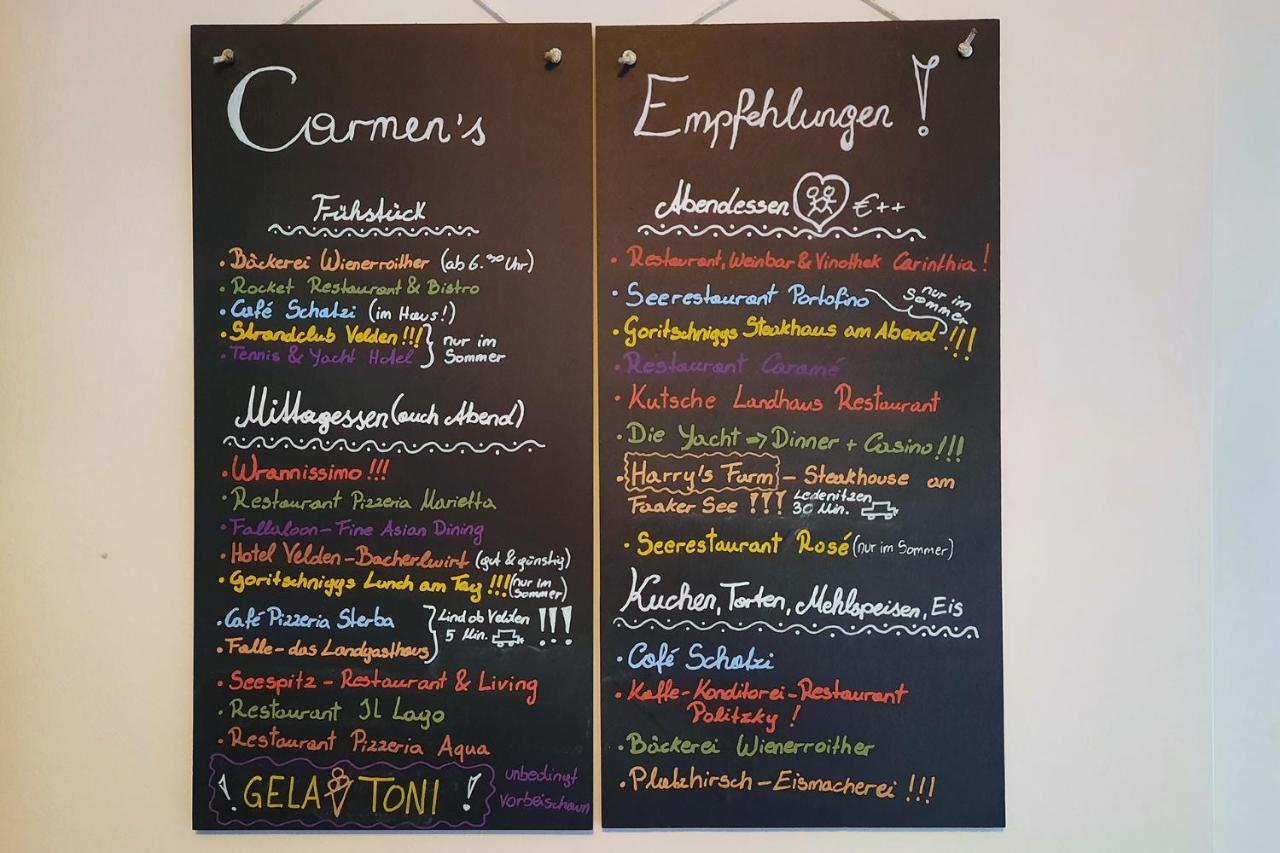 Carmen's
Frühstück
• Bäckerei Wienerroither (ab 6.00 Uhr)
• Rocket Restaurant & Bistro
• Café Schatzi (im Haus!)
• Strandclub Velden !!!
• Tennis & Yacht Hotel } nur im Sommer
Mittagessen (auch Abend)
• Wrannissimo !!!
• Restaurant Pizzeria Marietta
• Fallaloon - Fine Asian Dining
• Hotel Velden - Bacherlwirt (gut & günstig)
• Goritschniggs Lunch am Tag !!! (nur im Sommer)
• Café Pizzeria Sterba
• Falle - das Landgasthaus } Lind ob Velden 5 Min. !!!
• Seespitz - Restaurant & Living
• Restaurant Il Lago
• Restaurant Pizzeria Aqua
! GELA TONI !
unbedingt
vorbeischaun
Empfehlungen !
Abendessen €++
• Restaurant, Weinbar & Vinothek Carinthia !
• Seerestaurant Portofino nur im Sommer
• Goritschniggs Steakhaus am Abend !!!
• Restaurant Caramé
• Kutsche Landhaus Restaurant
• Die Yacht => Dinner + Casino !!!
• Harry's Farm - Steakhouse am
Faaker See !!! Ledenitzen 30 Min.
• Seerestaurant Rosé (nur im Sommer)
Kuchen, Torten, Mehlspeisen, Eis
• Café Schatzi
• Kaffe-Konditorei-Restaurant
Politzky !
• Bäckerei Wienerroither
• Platzhirsch - Eismacherei !!!